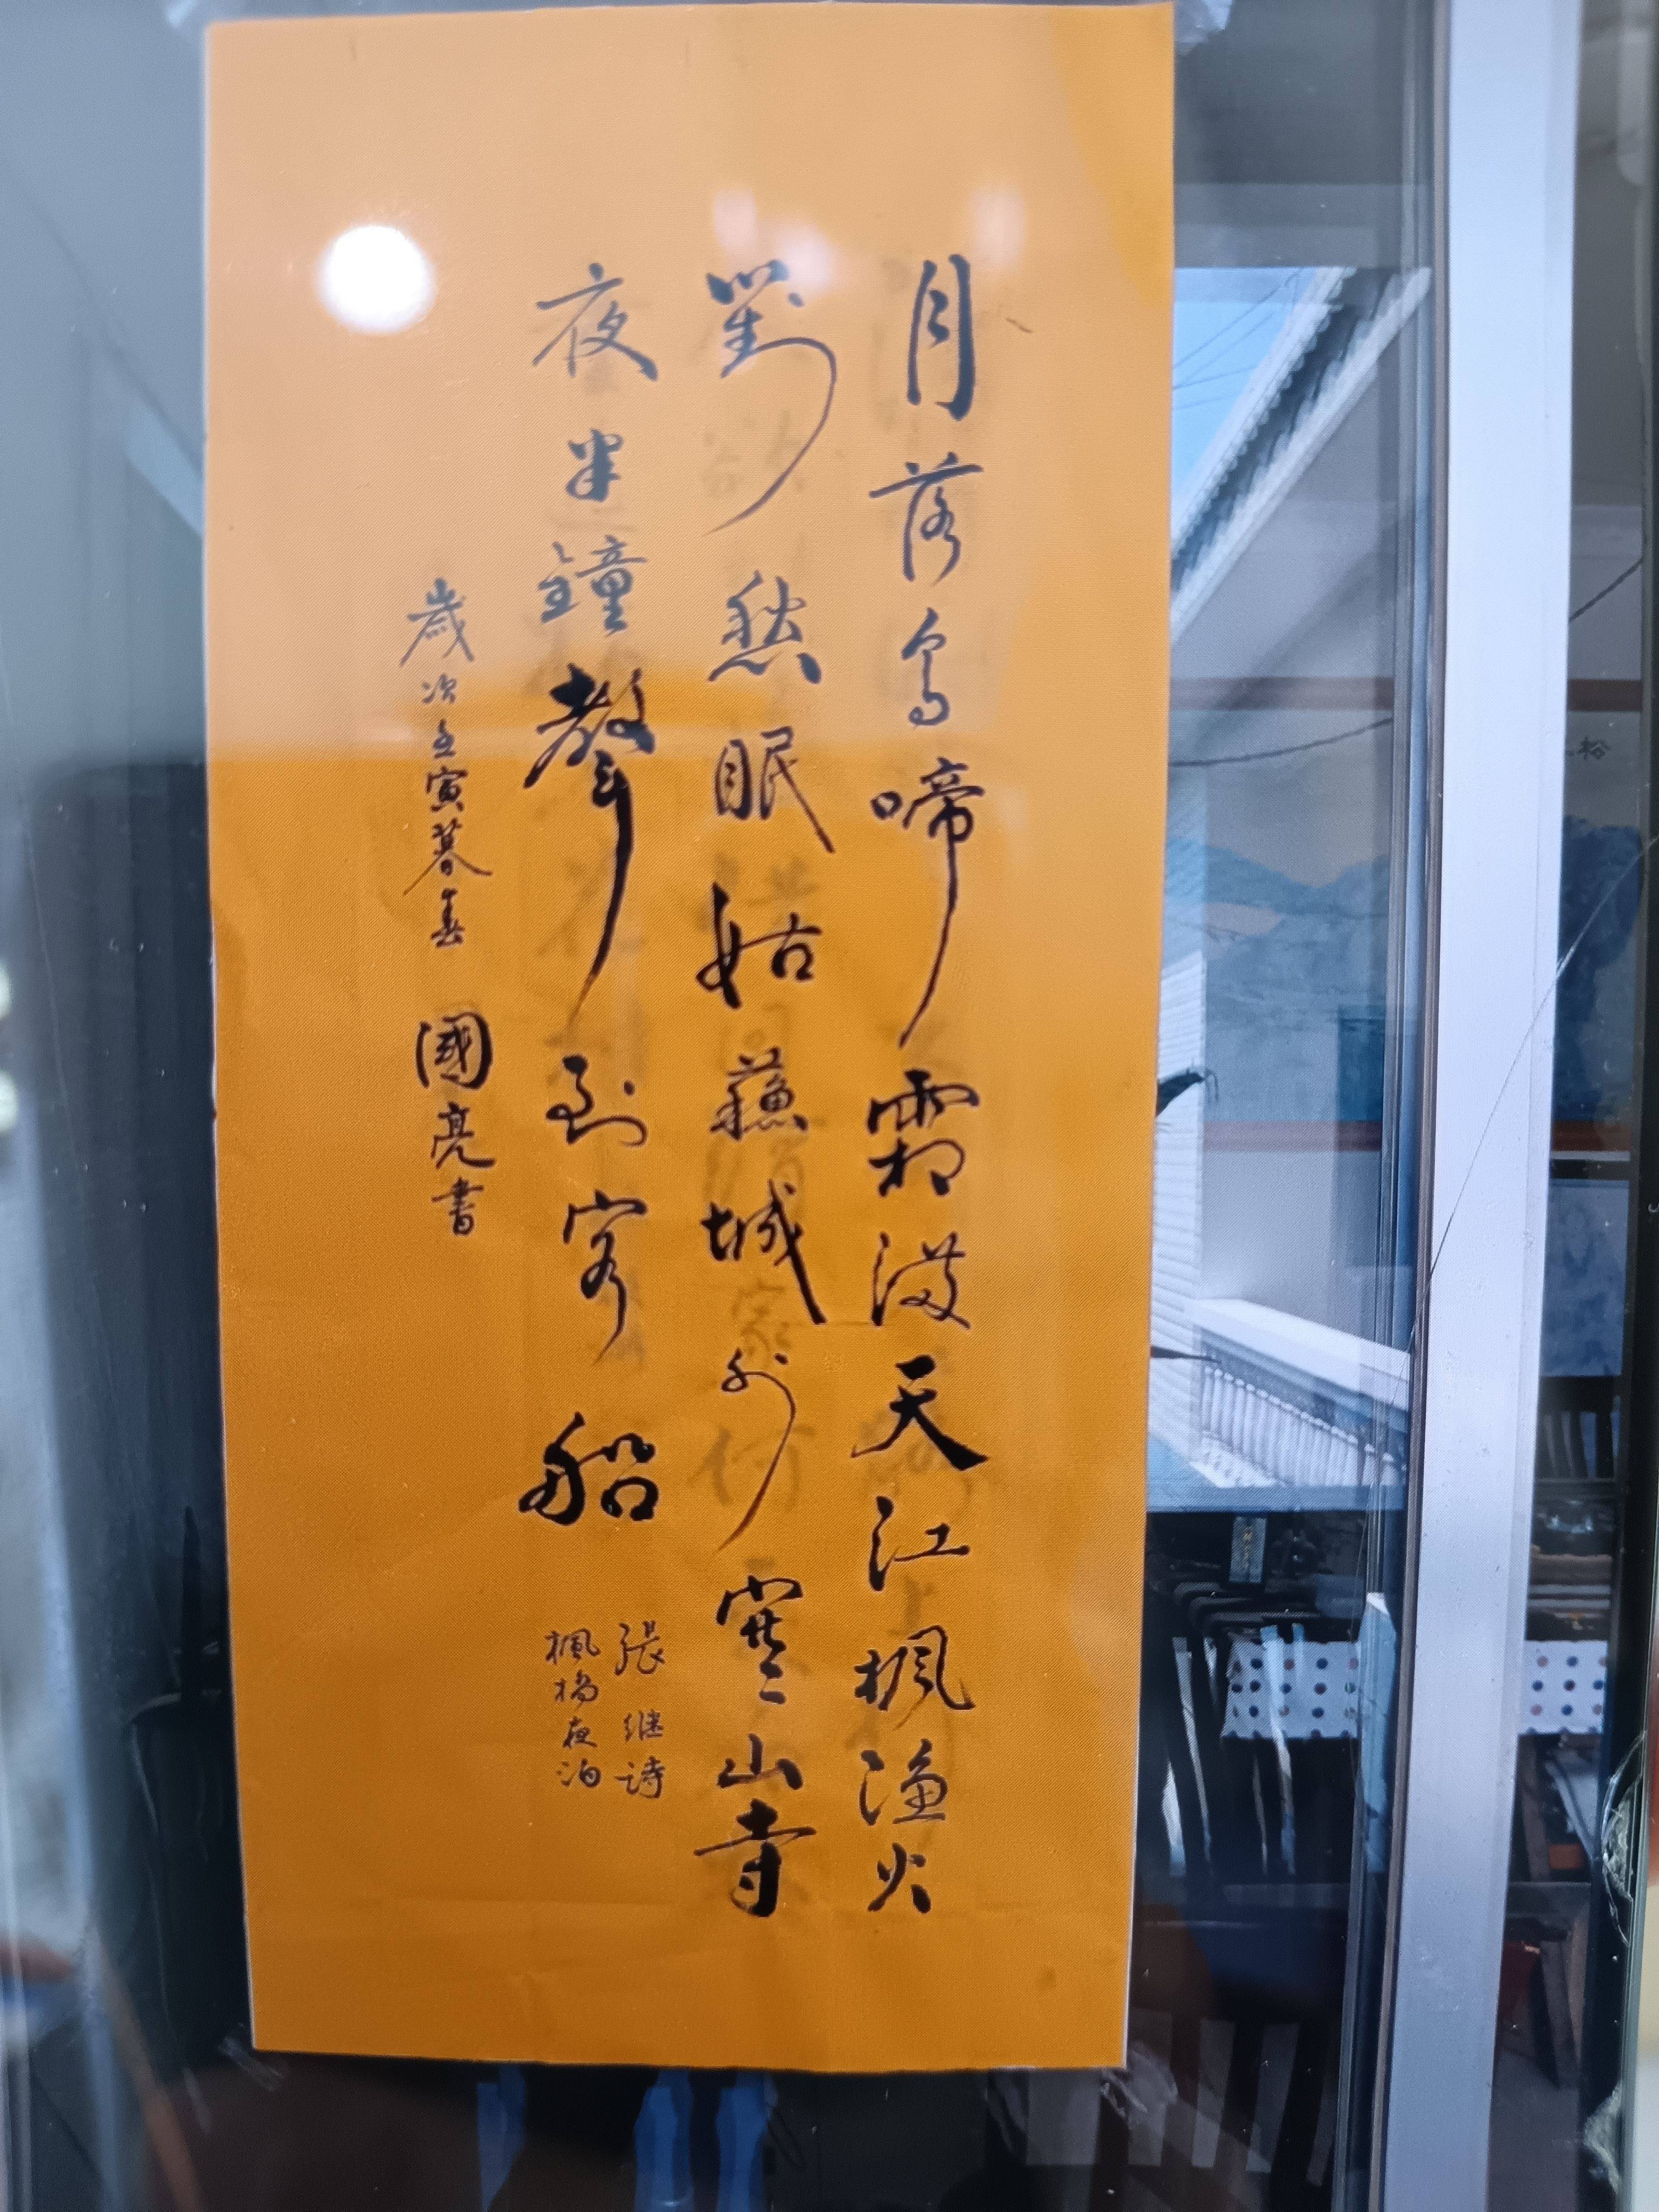 月落烏啼霜满天江枫渔火
對愁眠姑蘇城外寒山寺
夜半鐘聲到客船
張继诗
楓橋夜泊
歲次壬寅暮春 國亮書